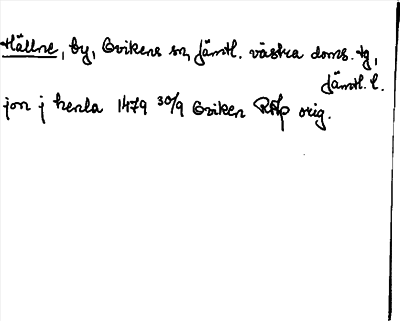 Hällne, by, Ovikens sn, Jämtl. västra doms. tg,
Jämtl. l.
jon j henla 1479 30/9 Oviken RAp orig.